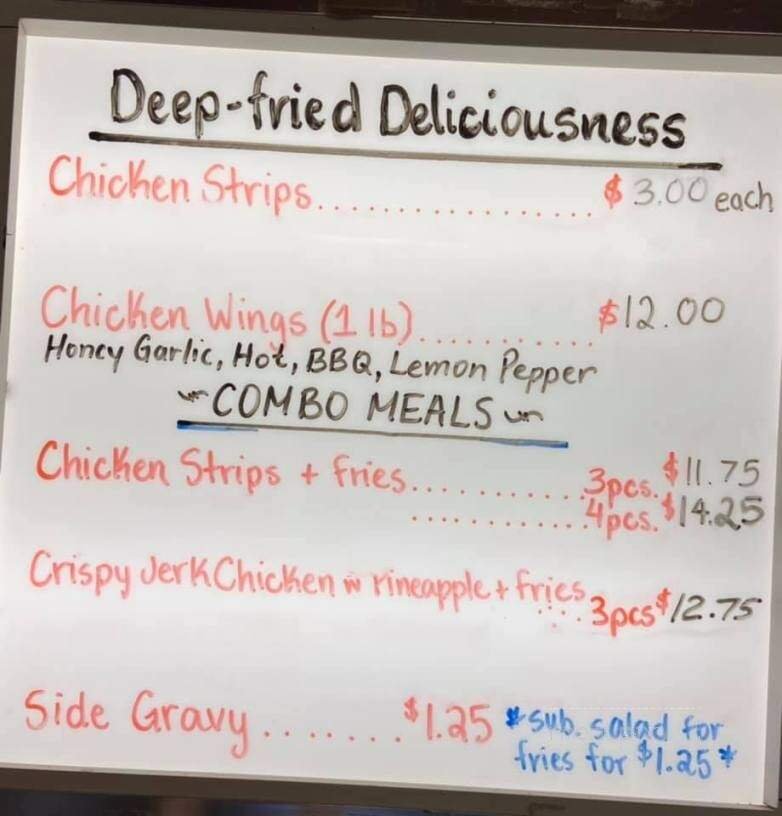 Deep-fried Deliciousness
Chicken Strips................. $3.00 each
Chicken Wings (1 lb)............ $12.00
Honey Garlic, Hot, BBQ, Lemon Pepper
~COMBO MEALS~
Chicken Strips + fries............3pcs. $11.75
............4pcs. $14.25
Crispy Jerk Chicken w Pineapple + fries
....3pcs $12.75
Side Gravy.......$1.25 *sub. salad for
fries for $1.25*